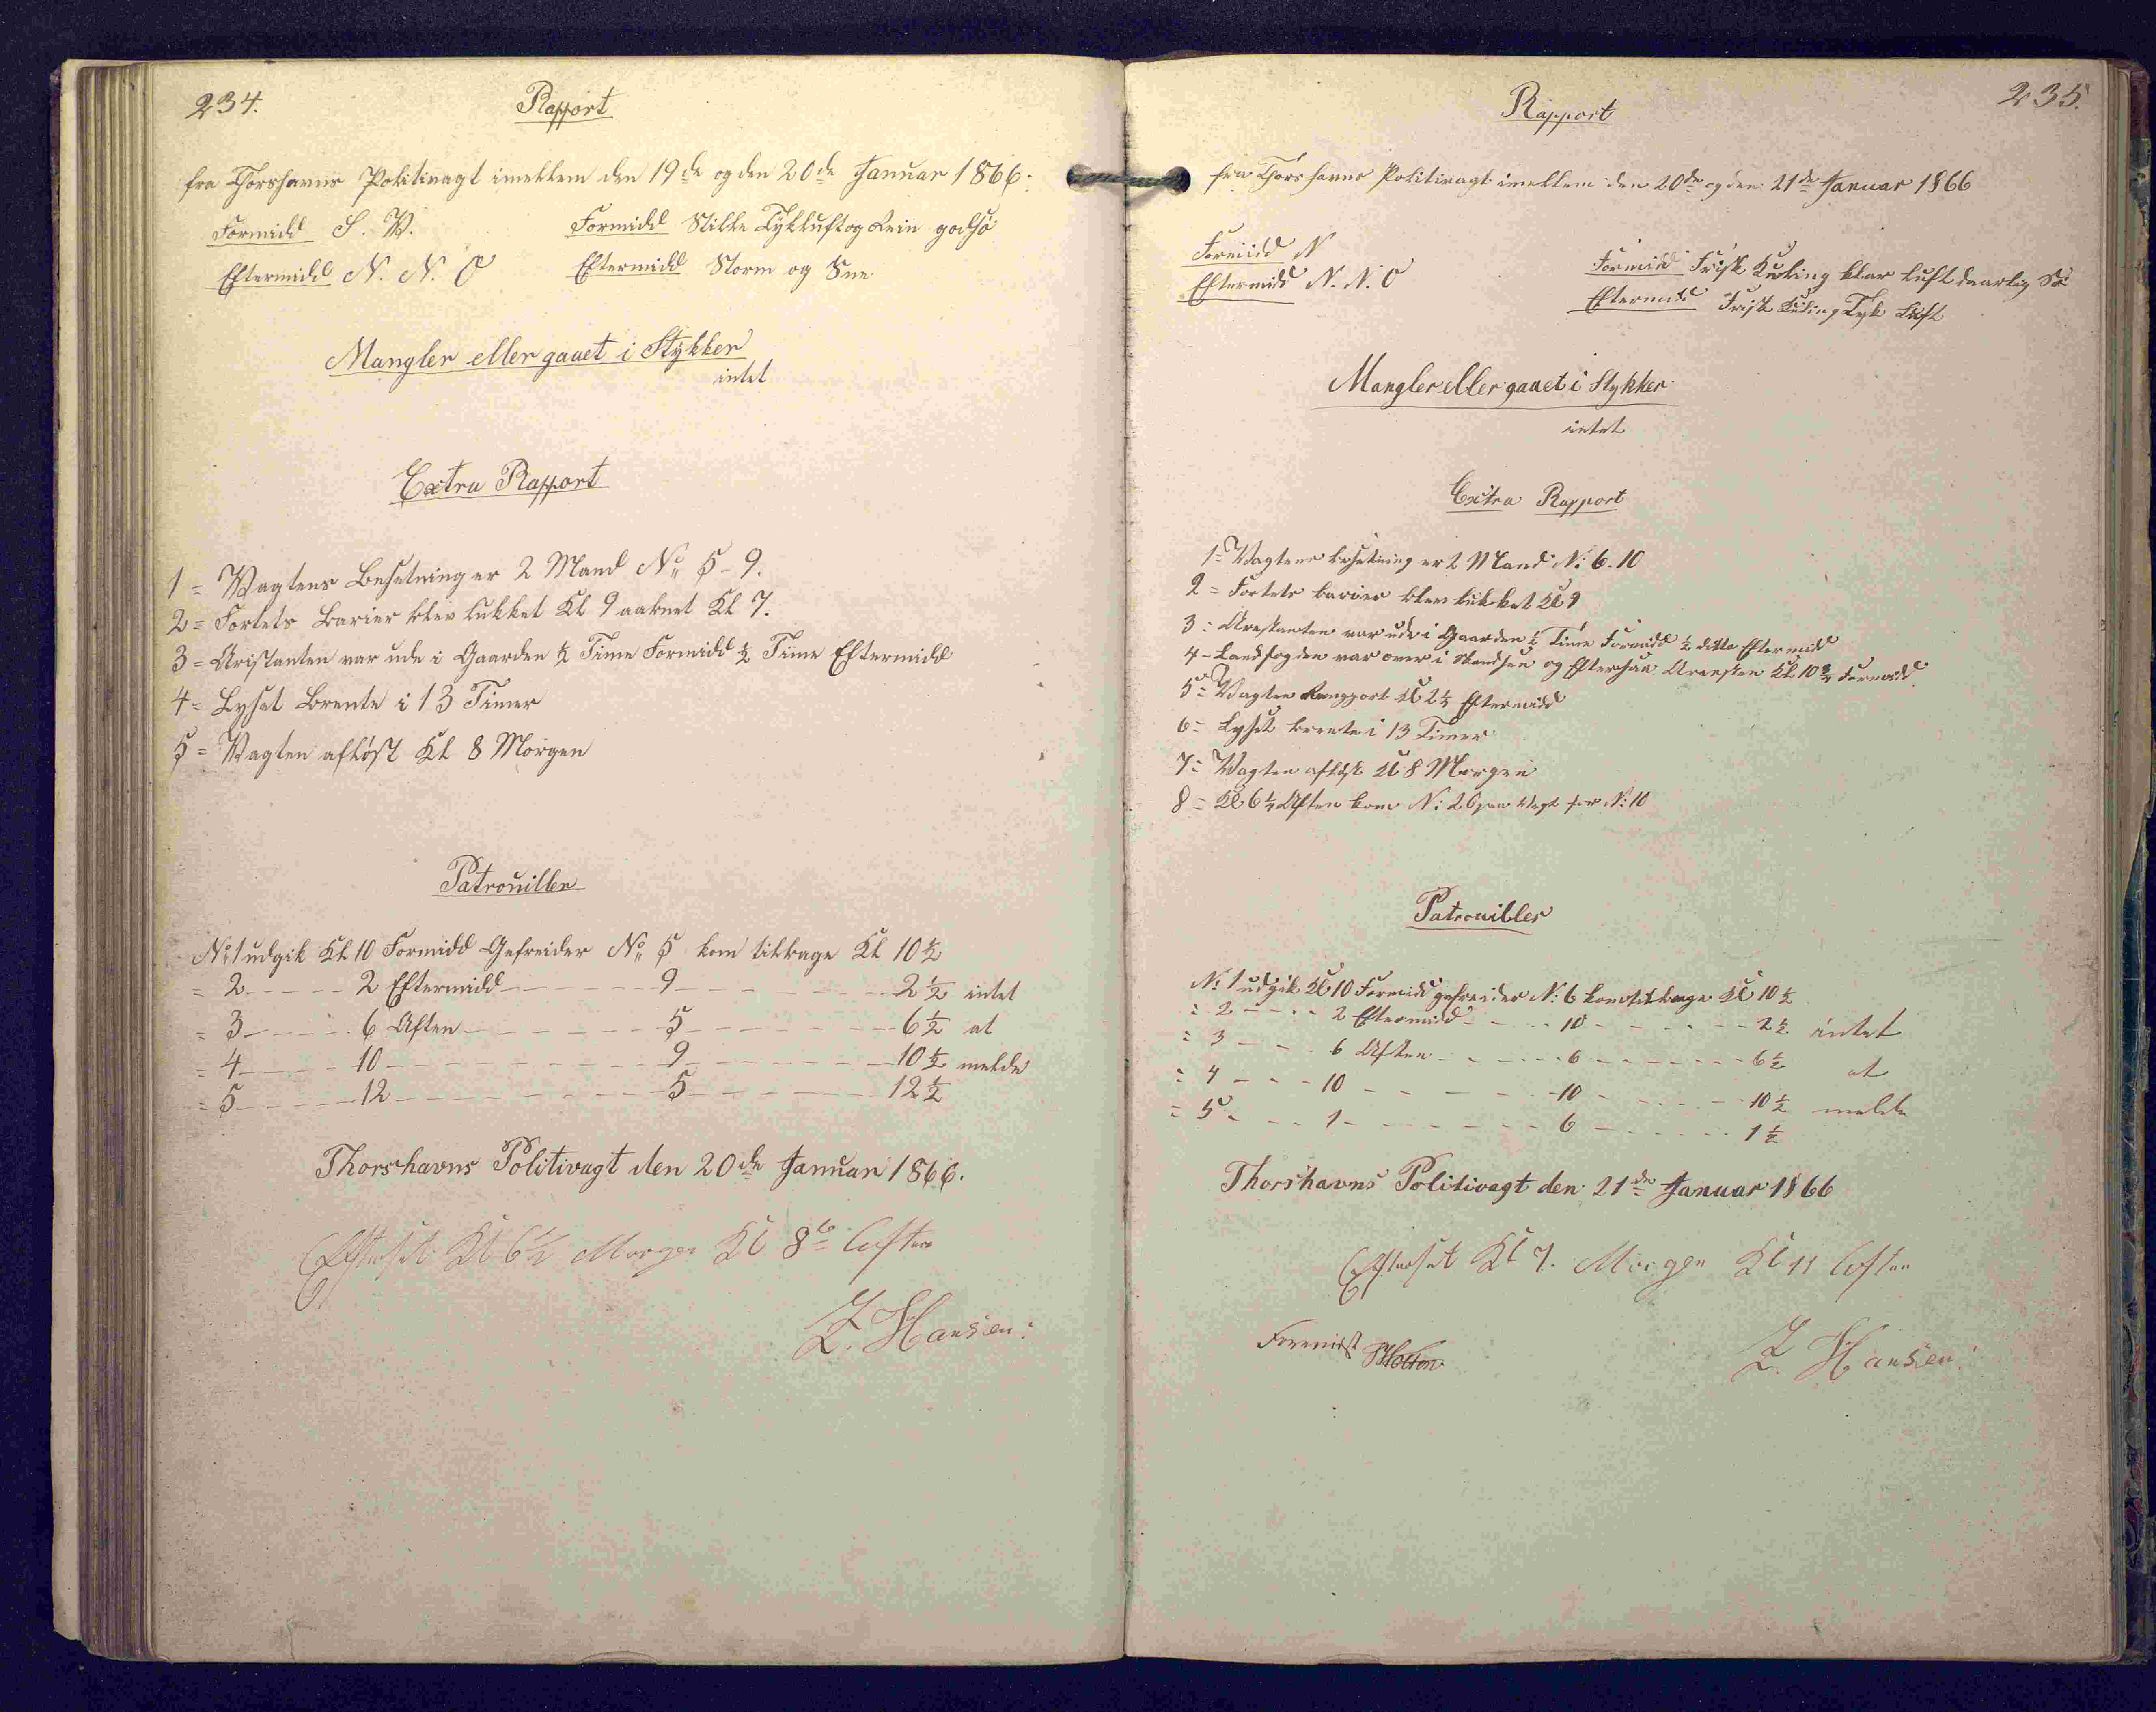 234.
Rapport
fra Thorshavns Politivagt imellem den 19de og den 20de Januar 1866.
Formidd S. V.
Formidd Stille Tykluft og Rein god Sø
Eftermidd N. N. O
Eftermidd Storm og Sne
Mangler eller gaaet i Stykker
intet
Extra Rapport
1 = Vagtens Besetning er 2 Mand No 5-9.
2 = Fortets Barier blev lukket Kl 9 aabnet Kl 7.
3 = Aristanten var ude i Gaarden ½ Time Formidd ½ Time Eftermidd
4 = Lyset Brente i 13 Timer
5 = Vagten afløst Kl 8 Morgen
Patrouiller
No 1 udgik Kl 10 Formidd Gefreider No 5 kom tilbage Kl 10½
= 2 - - - - 2 Eftermidd - - - - - - 9 - - - - - - 2½ intet
= 3 - - - - 6 Aften - - - - - - 5 - - - - - - 6½ at
= 4 - - - - 10 - - - - - - 9 - - - - - - 10½ melde
= 5 - - - - 12 - - - - - - 5 - - - - - - 12½
Thorshavns Politivagt den 20de Januar 1866.
Efterset Kl 6½ Morgen Kl 8 Aften
Z. Hansen.
235.
Rapport
fra Thorshavns Politivagt imellem den 20de og den 21de Januar 1866
Formidd N
Eftermidd N. N. O
Formidd Frisk Kuling klar luft daarlig Sø
Eftermidd Frisk Kuling Tyk Luft
Mangler eller gaaet i Stykker
intet
Extra Rapport
1 = Vagtens besetning er 2 Mand N: 6. 10
2 = Fortets barier blev lukket Kl 9
3 = Arestanten var ude i Gaarden ½ Time Formidd ½ ditto Eftermidd
4 - Landfogden var over i Skandsen og Eftersaa Arresten Kl 10¾ Formidd.
5 = Vagten Kl 2½ Eftermidd
6 = Lyset brente i 13 Timer
7 = Vagten afløst Kl 8 Morgen
8 = Kl 6½ Aften kom N: 26 paa Vagt for N: 10
Patrouiller
N: 1 udgik Kl 10 Formidd gefreider N: 6 kom tilbage Kl 10½
= 2 - - - - 2 Eftermidd - - - - 10 - - - - - - 2½ intet
= 3 - - - 6 Aften - - - - - 6 - - - - - - 6½ at
= 4 - - - 10 - - - - - - 10 - - - - - 10½ melde
= 5 - - - 1 - - - - - - 6 - - - - - 1½
Thorshavns Politivagt den 21de Januar 1866
Efterset Kl 7. Morgen Kl 11 Aften
Z. Hansen.